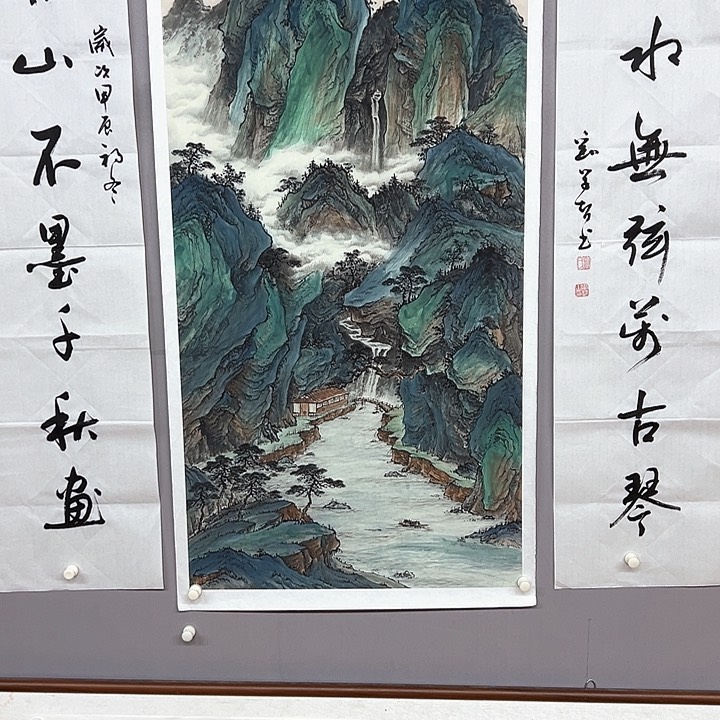 水無弦萬古琴
歲次甲辰初冬
山不墨千秋畫